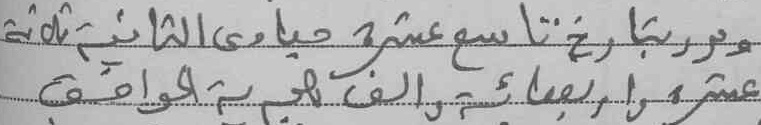 وحرر بتاريخ تاسع عشر جمادى الثانية ثلاثة
عشر وأربعمائة وألف هجرية الموافق